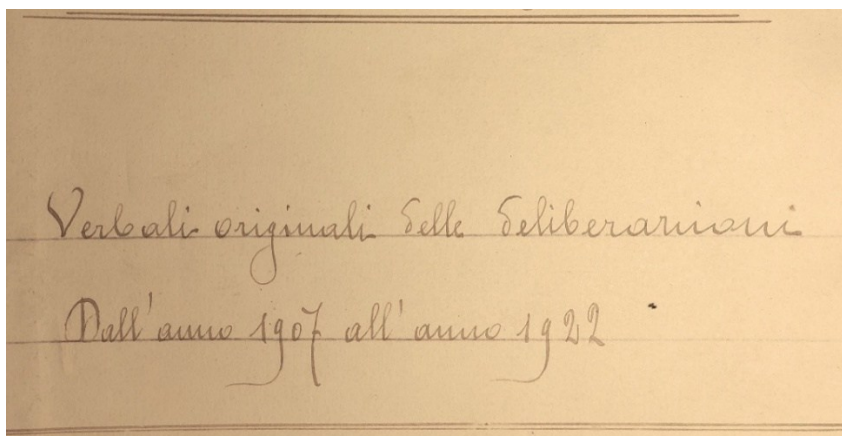 Verbali originali delle deliberazioni
Dall'anno 1907 all'anno 1922